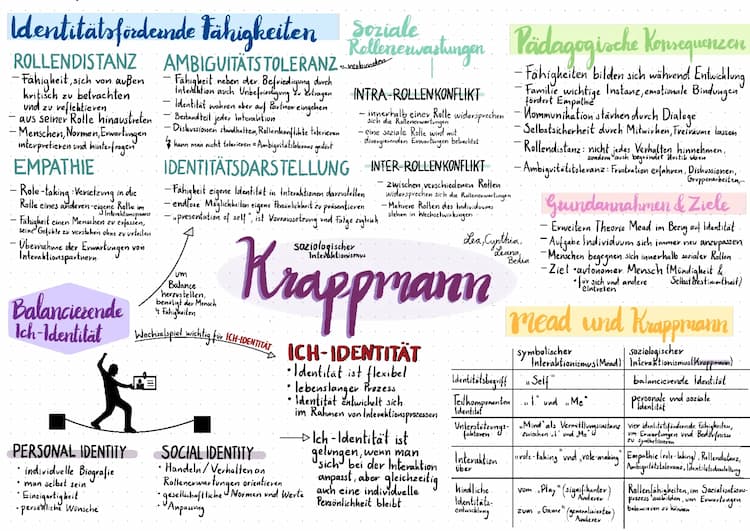 Identitätsfördernde Fähigkeiten
ROLLENDISTANZ
– Fähigkeit, sich von außen
kritisch zu betrachten
und zu reflektieren
– aus seiner Rolle hinaustreten
– Menschen, Normen, Erwartungen
interpretieren und hinterfragen
AMBIGUITÄTSTOLERANZ
– Fähigkeit neben der Befriedigung durch
Interaktion auch Unbefriedigung zu ertragen
– Identität wahren aber auf Partner eingehen
– Bestandteil jeder Interaktion
– Diskussionen standhalten, Rollenkonflikte tolerieren
kann man nicht tolerieren = Ambiguitätstoleranz gestört
EMPATHIE
– Role-taking: Versetzung in die
Rolle eines anderen - eigene Rolle im
Interaktionsprozess
– Fähigkeit einen Menschen zu erfassen,
seine Gefühle zu verstehen ohne zu urteilen
– Übernahme der Erwartungen von
Interaktionspartnern
IDENTITÄTSDARSTELLUNG
– Fähigkeit eigene Identität in Interaktionen darzustellen
– endlose Möglichkeiten eigene Persönlichkeit zu präsentieren
– „presentation of self", ist Voraussetzung und Folge zugleich
Soziale
Rollenerwartungen
verbunden
INTRA-ROLLENKONFLIKT
– innerhalb einer Rolle widersprechen
sich die Rollenerwartungen
– eine soziale Rolle wird mit
divergierenden Erwartungen behaftet
INTER-ROLLENKONFLIKT
– zwischen verschiedenen Rollen
widersprechen sich die Rollenerwartungen
– Mehrere Rollen des Individuums
stehen in Wechselwirkungen
Pädagogische Konsequenzen
– Fähigkeiten bilden sich während Entwicklung
– Familie wichtige Instanz, emotionale Bindungen
fördert Empathie
– Kommunikation stärken durch Dialoge
– Selbstsicherheit durch Mitwirken, Freiräume lassen
– Rollendistanz: nicht jedes Verhalten hinnehmen,
sondern auch begründet Kritik üben
– Ambiguitätstoleranz: Frustration erfahren, Diskussionen,
Gruppenarbeiten,...
Grundannahmen & Ziele
– Erweitern Theorie Mead im Bezug auf Identität
– Aufgabe Individuum sich immer neu anzupassen
– Menschen begegnen sich innerhalb sozialer Rollen
– Ziel = autonomer Mensch (Mündigkeit &
Selbstbestimmtheit)
für sich und andere
eintreten
soziologischer
Interaktionismus
Krappmann
Lea, Cynthia,
um
Balance
herzustellen,
benötigt der Mensch
4 Fähigkeiten
Balancierende
Ich-Identität
Wechselspiel wichtig für ICH-IDENTITÄT
PERSONAL IDENTITY
• individuelle Biografie
• man selbst sein
• Einzigartigkeit
• persönliche Wünsche
SOCIAL IDENTITY
• Handeln/Verhalten an
Rollenerwartungen orientieren
• gesellschaftliche Normen und Werte
• Anpassung
ICH-IDENTITÄT
• Identität ist flexibel
• lebenslanger Prozess
• Identität entwickelt sich
im Rahmen von Interaktionsprozessen
Ich-Identität ist
gelungen, wenn man
sich bei der Interaktion
anpasst, aber gleichzeitig
auch eine individuelle
Persönlichkeit bleibt
Mead und Krappmann
symbolischer Interaktionismus (Mead)
soziologischer Interaktionismus (Krappmann)
Identitätsbegriff
„Self"
balancierende Identität
Teilkomponenten Identität
„I" und „Me"
personale und soziale Identität
Unterstützungsfaktoren
„Mind" als Vermittlungsinstanz zwischen „I" und „Me"
vier identitätsfördernde Fähigkeiten, um Erwartungen und Bedürfnisse zu
Interaktion über
„role-taking" und „role-making"
Empathie (role-taking), Rollendistanz, Ambiguitätstoleranz, Identitätsdarstellung
Kindliche Identitätsentwicklung
vom „Play" (signifikanter) Anderer
zum „Game" (generalisierter) Anderer
Rollenfähigkeiten, im Sozialisationsprozess ausbilden, um Erwartungen